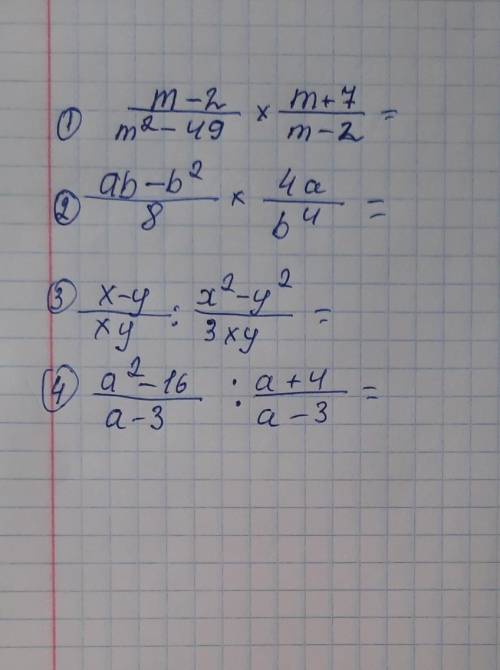 ① (m-2)/(m²-49) × (m+7)/(m-2) =
② (ab-b²)/8 × 4a/b⁴ =
③ (x-y)/xy : (x²-y²)/3xy =
④ (a²-16)/(a-3) : (a+4)/(a-3) =